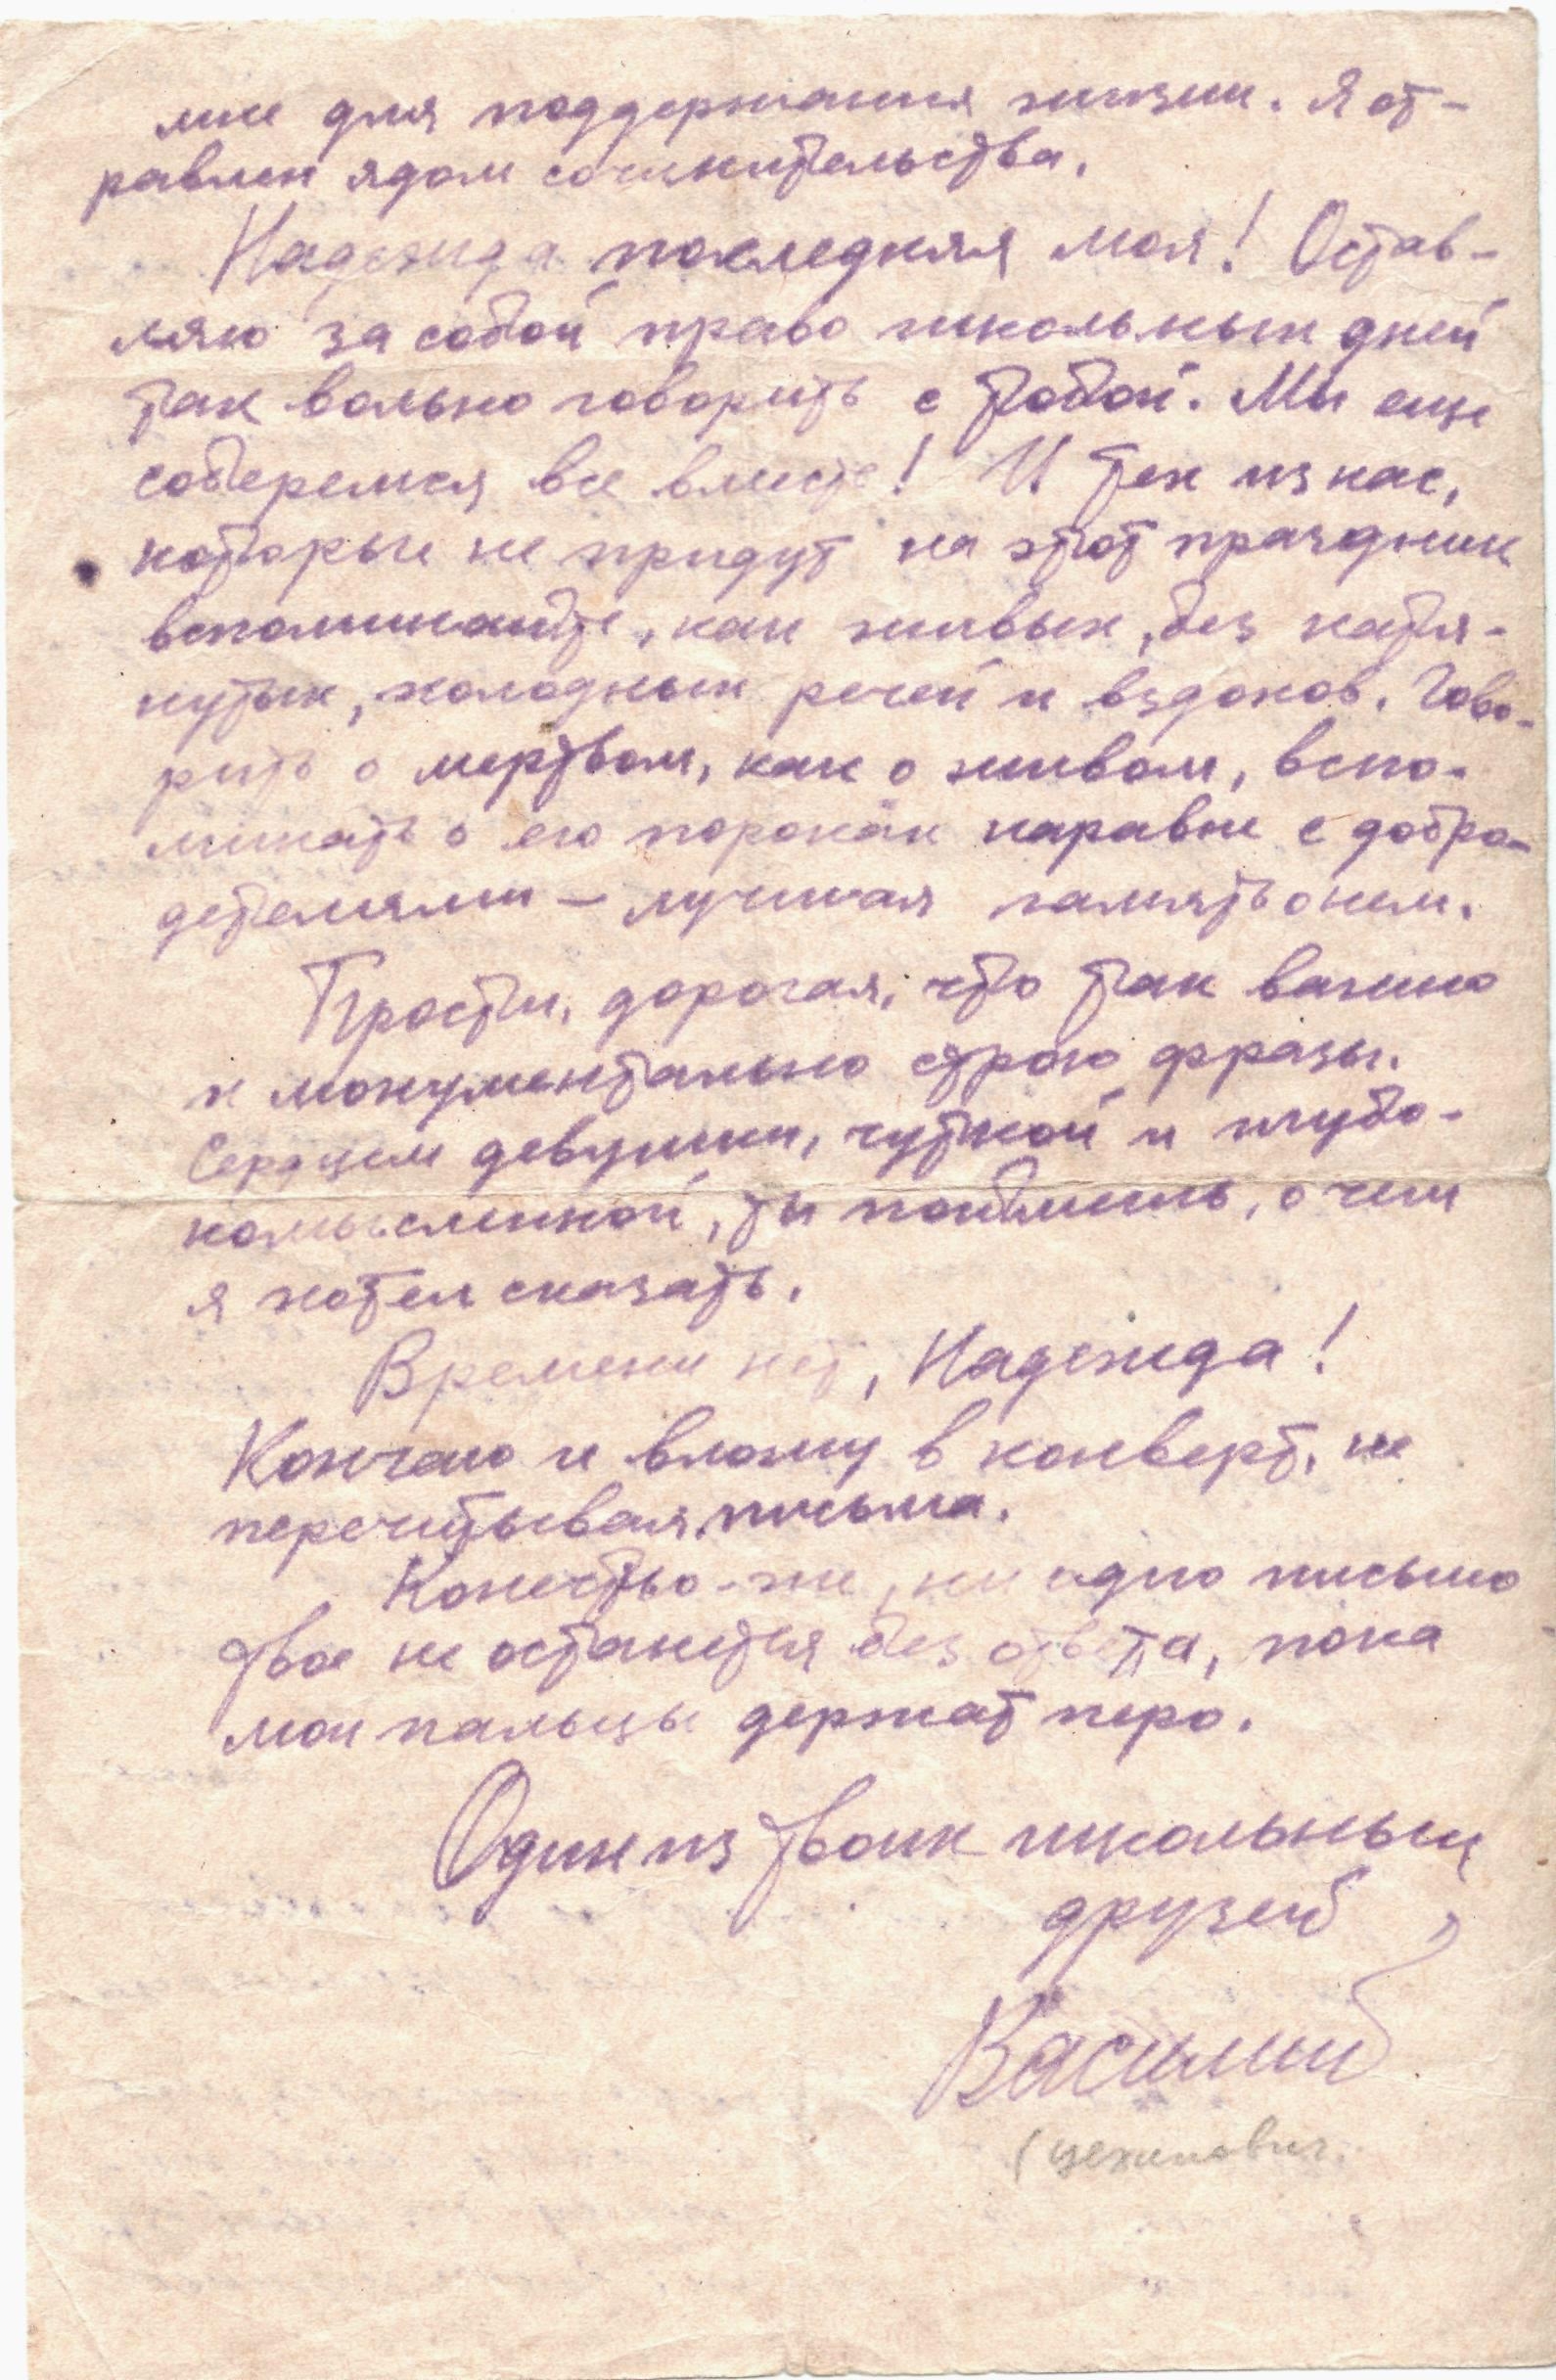 мне для поддержания жизни. Я от-
равлен ядом сочинительства.
Надежда последняя моя! Остав-
ляю за собой право школьных дней
так вольно говорить с тобой. Мы еще
соберемся все вместе! И тех из нас,
которые не придут на этот праздник
вспоминайте, как живых, без натя-
нутых, холодных речей и вздохов. Гово-
рить о мертвом, как о живом, вспо-
минать о его пороках наравне с добро-
детелями — лучшая память о нем.
Прости, дорогая, что так важно
и монументально строю фразы.
Сердцем девушки, чуткой и глубо-
комысленной, ты поймешь, о чем
я хотел сказать.
Времени нет, Надежда!
Кончаю и вложу в конверт, не
перечитывая письма.
Конечно-же, ни одно письмо
твое не останется без ответа, пока
мои пальцы держат перо.
Один из твоих школьных
друзей
Василий